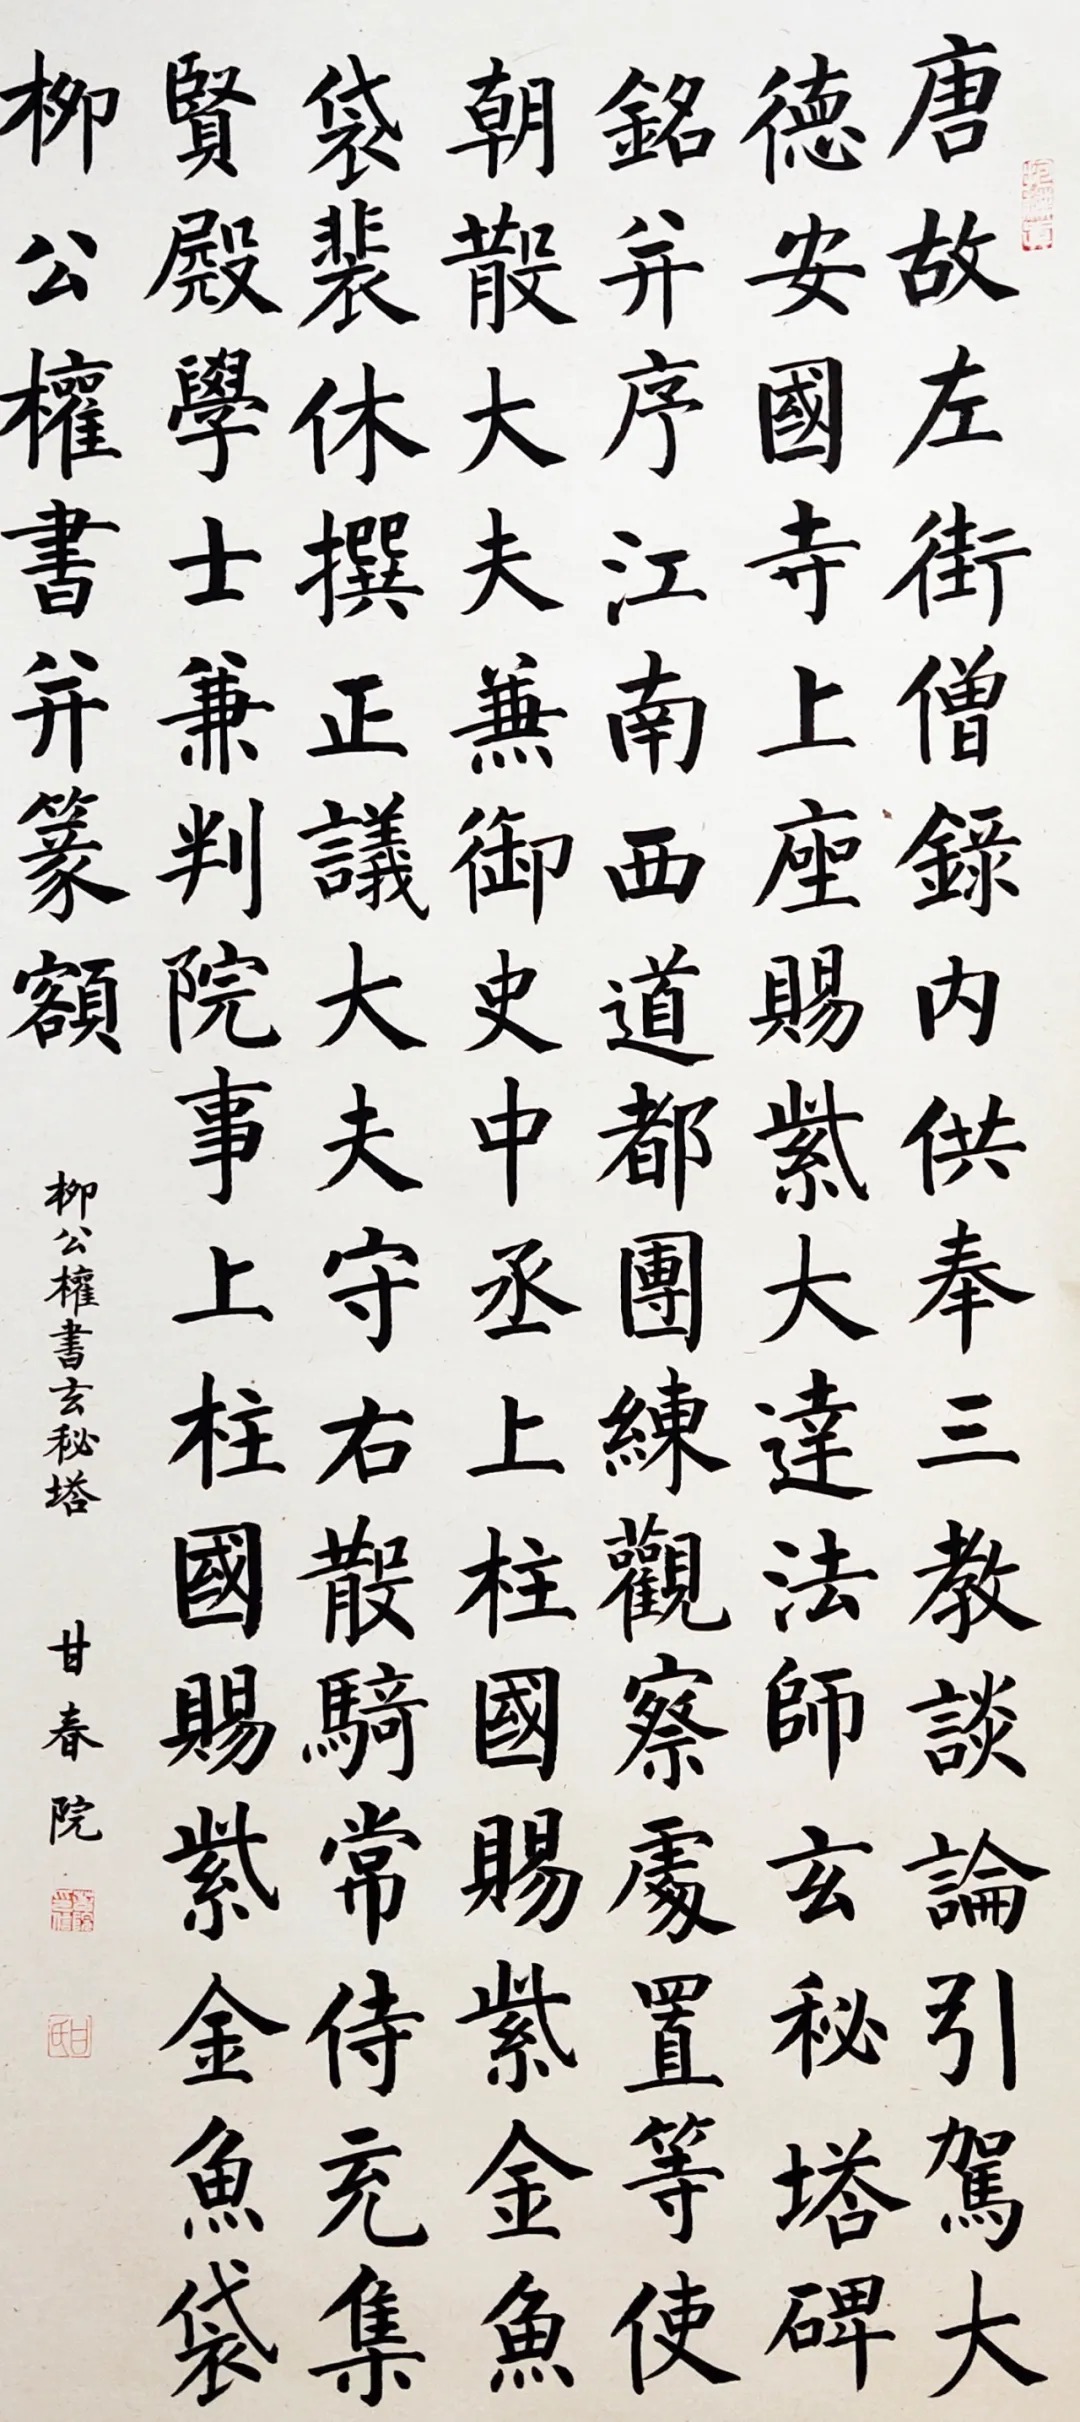 唐故左街僧錄內供奉三教談論引駕大
德安國寺上座賜紫大達法師玄秘塔碑
銘并序江南西道都團練觀察處置等使
朝散大夫兼御史中丞上柱國賜紫金魚
袋裴休撰正議大夫守右散騎常侍充集
賢殿學士兼判院事上柱國賜紫金魚袋
柳公權書并篆額
柳公權書玄秘塔
甘春院
甘氏